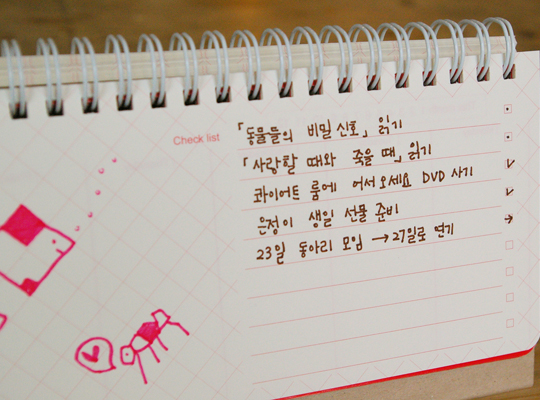 Check list
「동물들의 비밀신호」 읽기
「사랑할 때와 죽을 때」 읽기
콰이어트 룸에 어서오세요 DVD 사기
은정이 생일 선물 준비
23일 동아리 모임 →27일로 연기